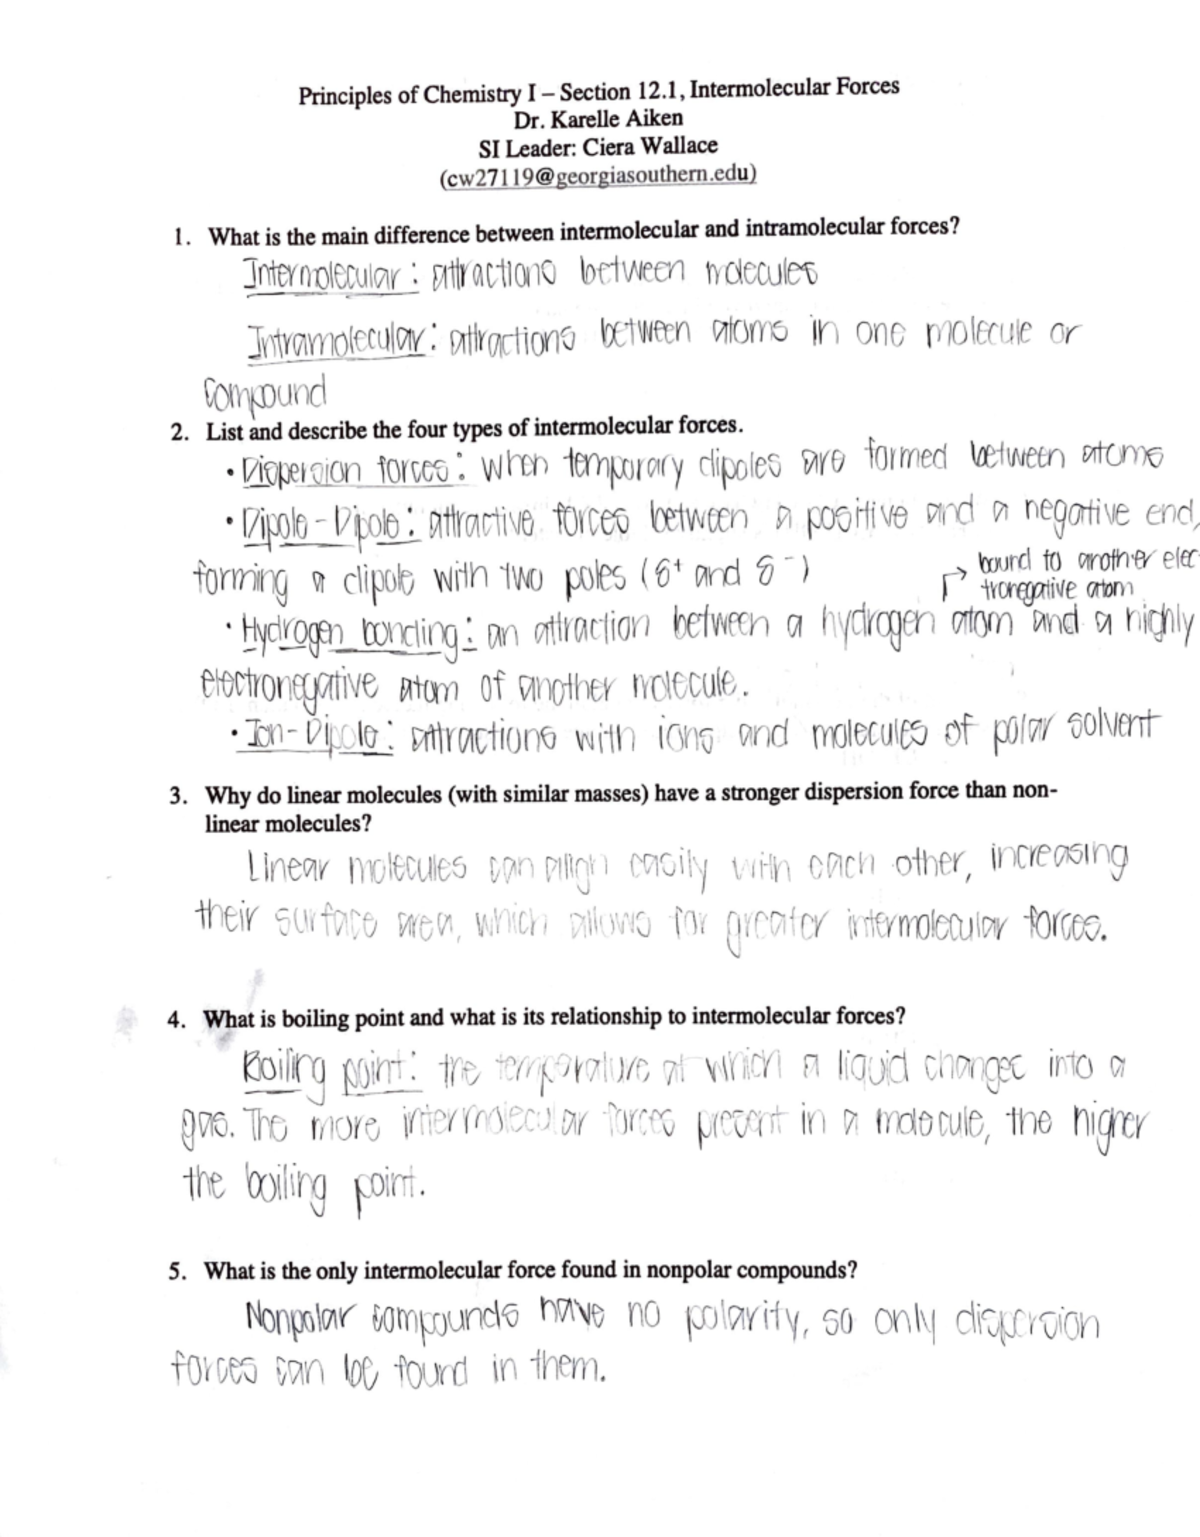 Principles of Chemistry I – Section 12.1, Intermolecular Forces
Dr. Karelle Aiken
SI Leader: Ciera Wallace
(cw27119@georgiasouthern.edu)
1. What is the main difference between intermolecular and intramolecular forces?
Intermolecular: attractions between molecules
Intramolecular: attractions between atoms in one molecule or
compound
2. List and describe the four types of intermolecular forces.
• Dispersion forces: when temporary dipoles are formed between atoms
• Dipole-Dipole: attractive forces between a positive and a negative end,
forming a dipole with two poles (δ+ and δ-)
→ bound to another elec-
tronegative atom
• Hydrogen bonding: an attraction between a hydrogen atom and a highly
electronegative atom of another molecule.
• Ion-Dipole: attractions with ions and molecules of polar solvent
3. Why do linear molecules (with similar masses) have a stronger dispersion force than non-
linear molecules?
Linear molecules can align easily with each other, increasing
their surface area, which allows for greater intermolecular forces.
4. What is boiling point and what is its relationship to intermolecular forces?
Boiling point: the temperature at which a liquid changes into a
gas. The more intermolecular forces present in a molecule, the higher
the boiling point.
5. What is the only intermolecular force found in nonpolar compounds?
Nonpolar compounds have no polarity, so only dispersion
forces can be found in them.